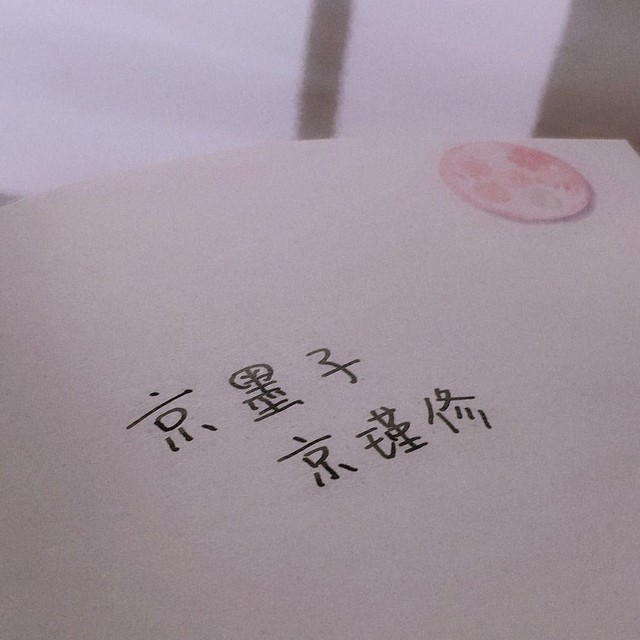 京墨子
京瑾修